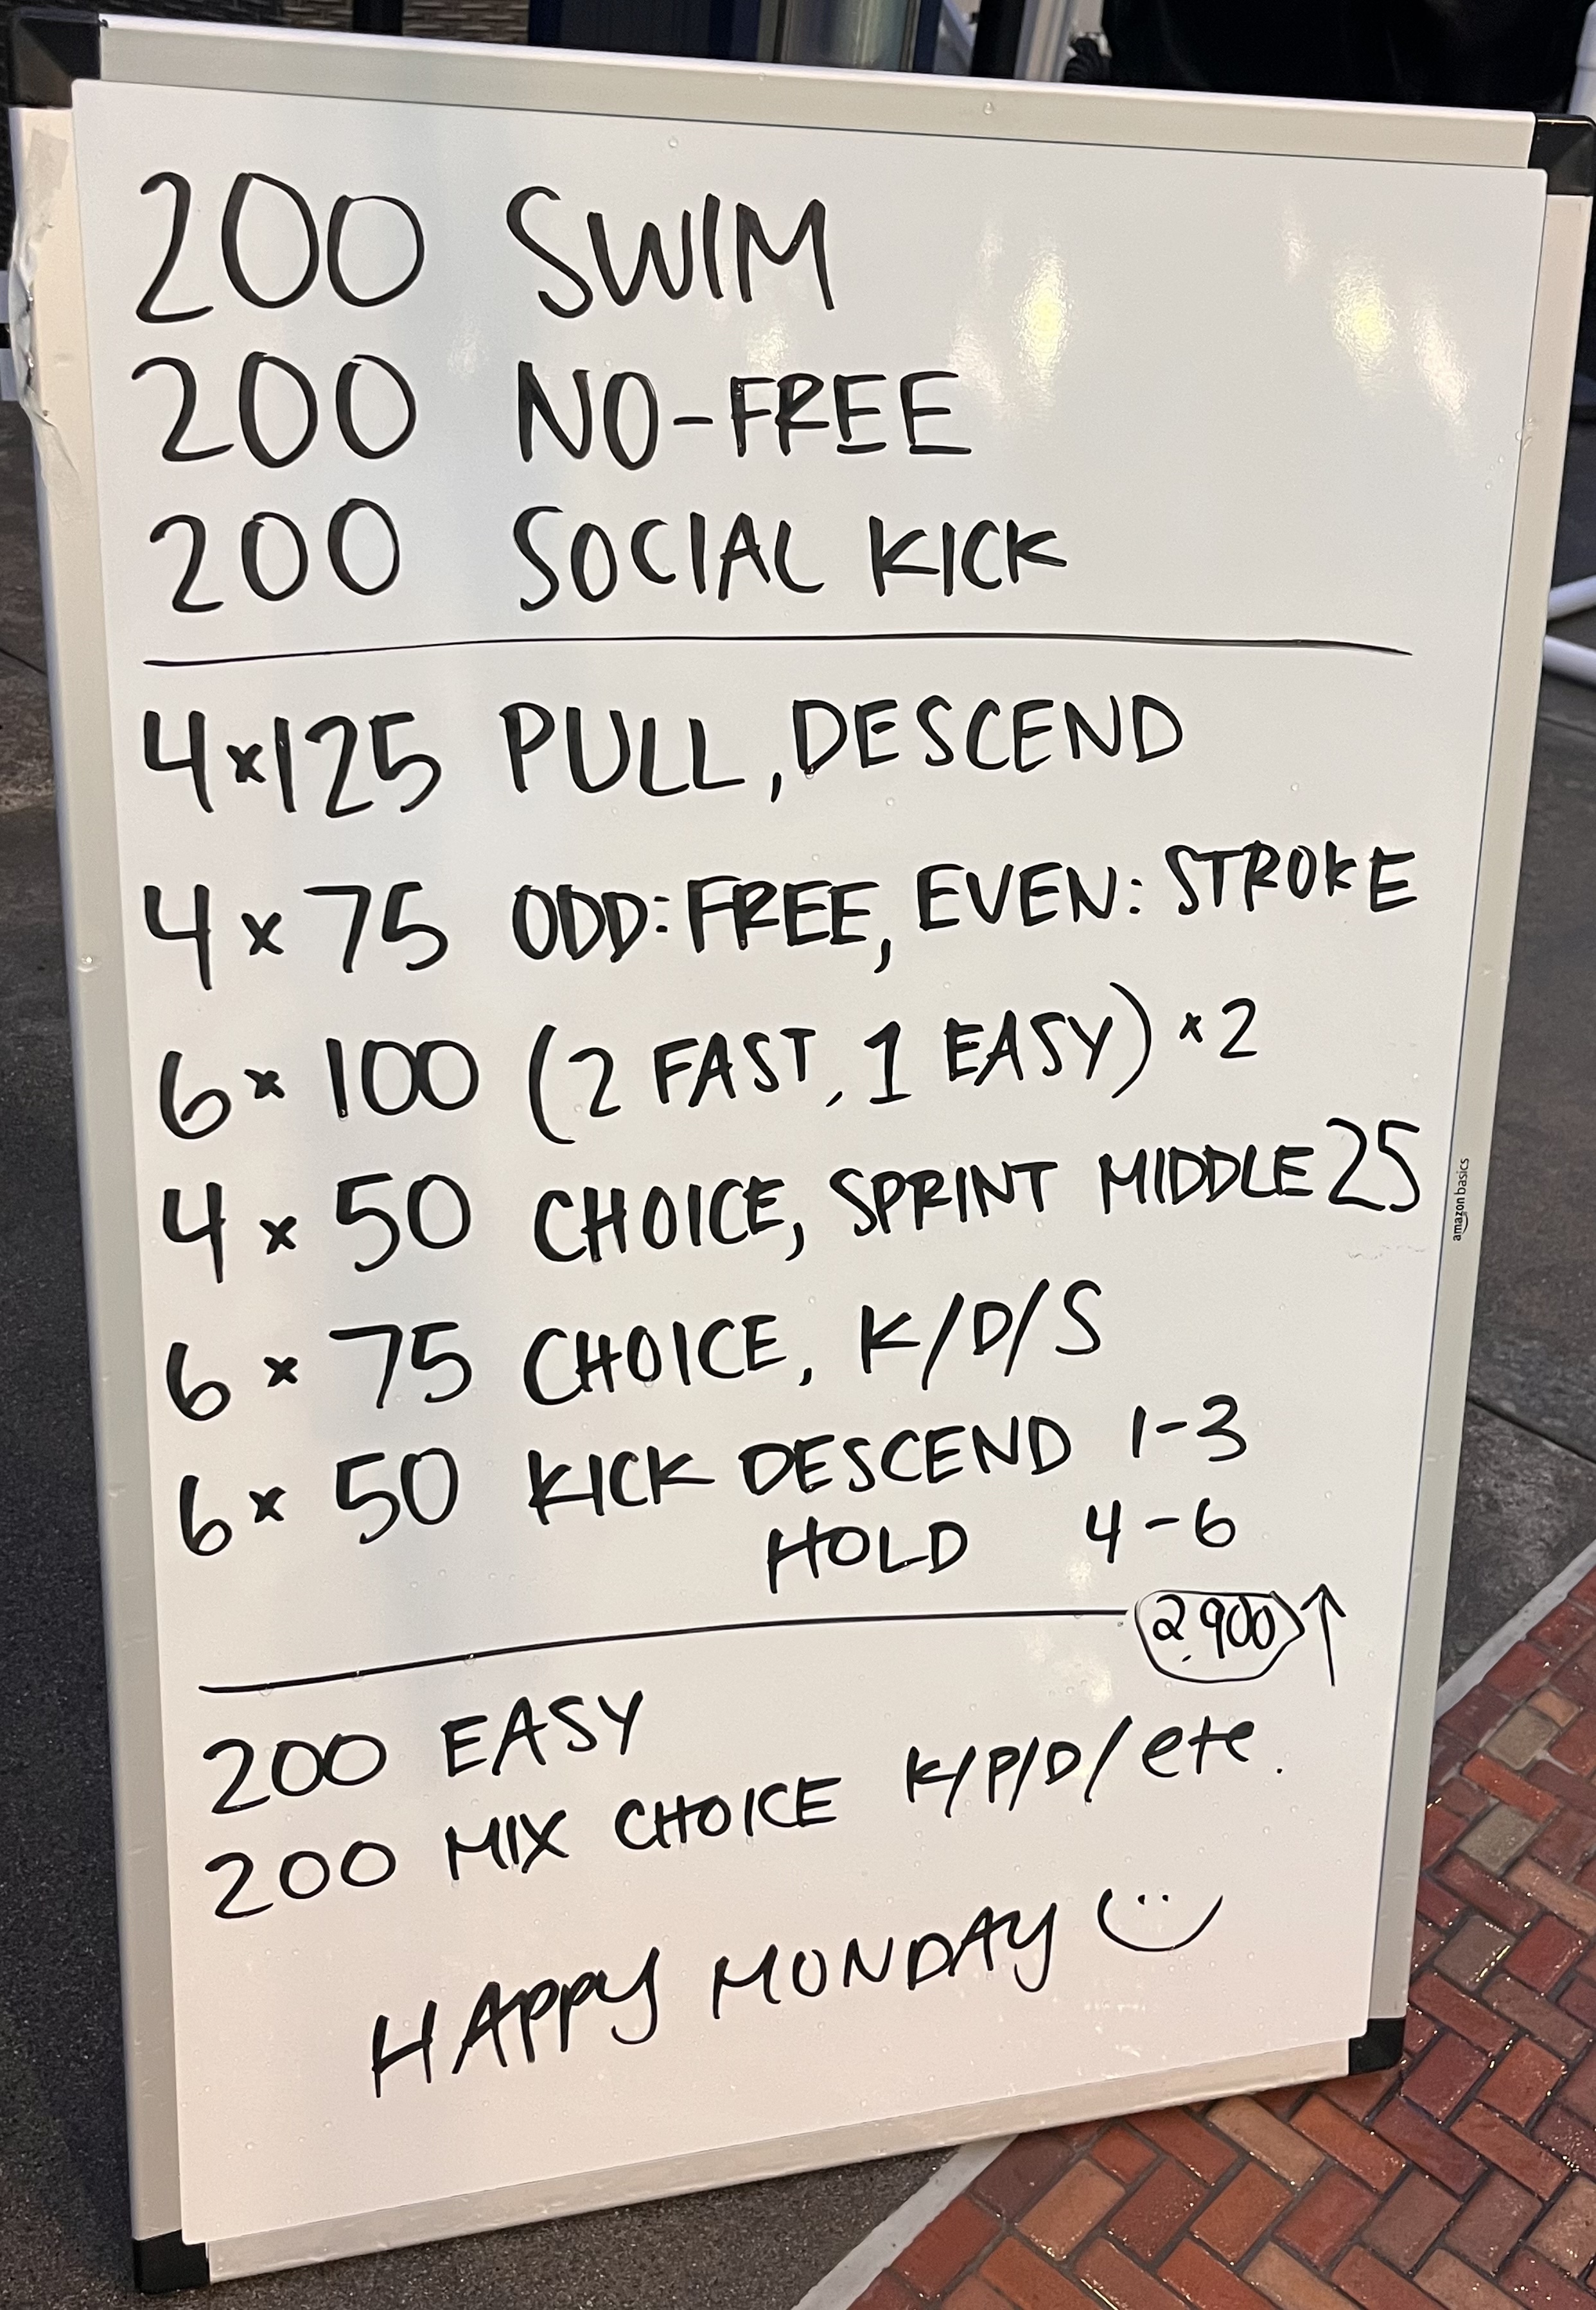 200 SWIM
200 NO-FREE
200 SOCIAL KICK
4x125 PULL, DESCEND
4 x 75 ODD: FREE, EVEN: STROKE
6 x 100 (2 FAST, 1 EASY) x 2
4 x 50 CHOICE, SPRINT MIDDLE 25
6 x 75 CHOICE, K/D/S
6 x 50 KICK DESCEND 1-3
HOLD 4-6
2,900 ↑
200 EASY
200 MIX CHOICE K/P/D/etc.
HAPPY MONDAY
amazon basics